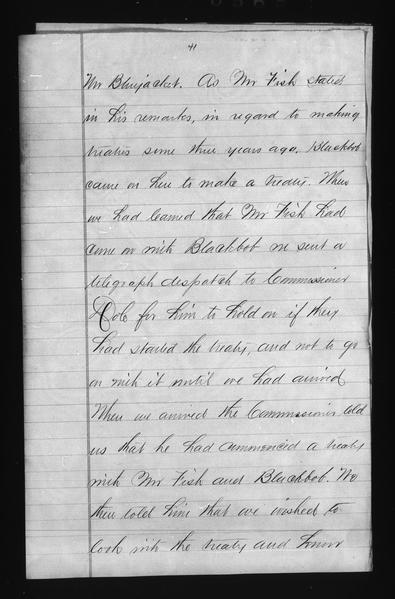 41
Mr Bluejacket. As Mr Fish stated
in his remarks, in regard to making
treaties some three years ago. Blackbob
came on here to make a treaty. When
we had learned that Mr Fish had
come on with Blackbob we sent a
telegraph despatch to Commissioner
Dole for him to hold on if they
had started the treaty, and not to go
on with it until we had arrived
When we arrived the Commissioner told
us that he had commenced a treaty
with Mr Fish and Blackbob. We
then told him that we wished to
look into the treaty and know